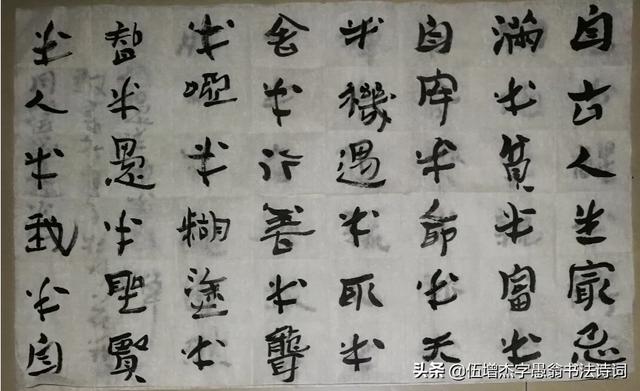 自古人生最忌
滿半貧半富半
自安半命半天
半機遇半取半
舍半行善半聾
半啞半糊塗半
智半愚半聖賢
半人半我半自
头条 @伍增杰字愚翁书法诗词